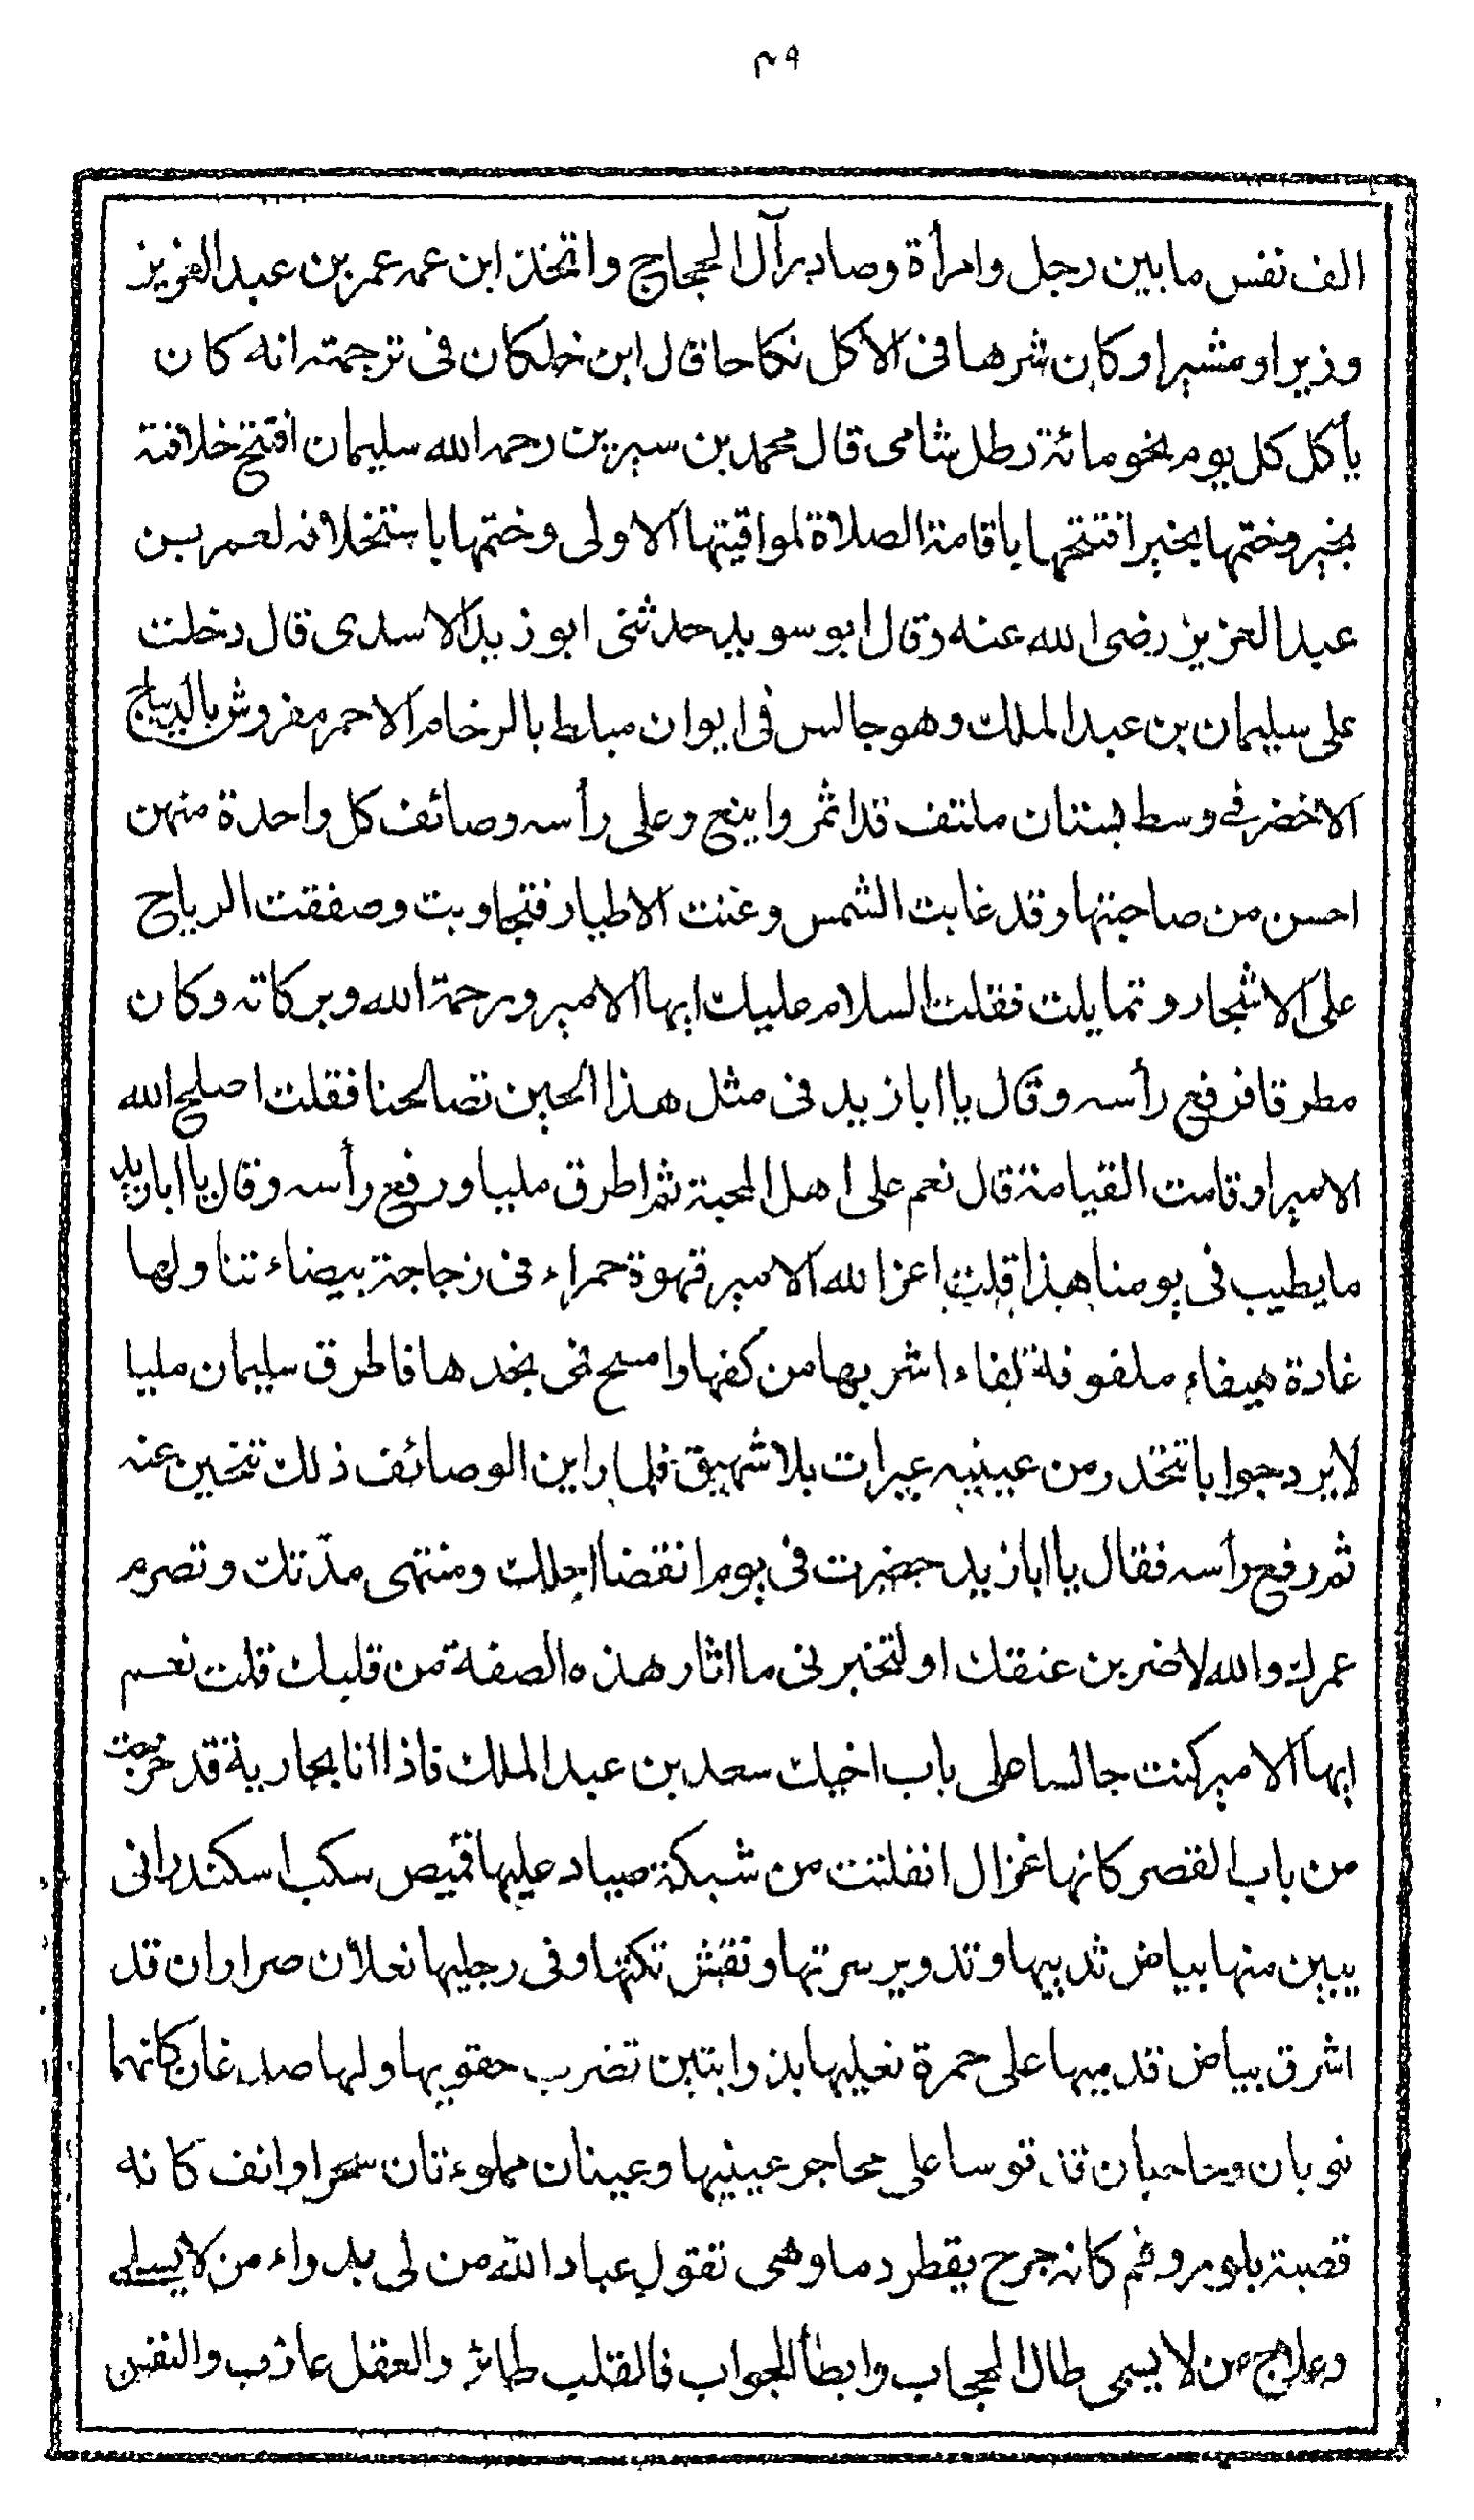 ٤٩
الف نفس ما بين رجل وامرأة وصادر آل الحجاج واتخذ ابن عمه عمر بن عبد العزيز
وزيرا ومشيرا وكان شرها فى الاكل نكاحا قال ابن خلكان فى ترجمته انه كان
يأكل كل يوم نحو مائة رطل شامى قال محمد بن سيرين رحمه الله سليمان افتتح خلافته
بخير وختمها بخير افتتحها باقامة الصلاة لمواقيتها الاولى وختمها باستخلافه لعمر بن
عبد العزيز رضى الله عنه وقال ابو سويد حدثنى ابو زيد الاسدى قال دخلت
على سليمان بن عبد الملك وهو جالس فى ايوان مبلط بالرخام الاحمر مفروش بالديباج
الاخضر فى وسط بستان ملتف قد اثمر واينع وعلى رأسه وصائف كل واحدة منهن
احسن من صاحبتها وقد غابت الشمس وغنت الاطيار فتجاوبت وصفقت الرياح
على الاشجار وتمايلت فقلت السلام عليك ايها الامير ورحمة الله وبركاته وكان
مطرقا فرفع رأسه وقال يا ابا زيد فى مثل هذا الحين تصالحنا فقلت اصلح الله
الامير او قامت القيامة قال نعم على اهل المحبة ثم اطرق مليا ورفع رأسه وقال يا ابا زيد
ما يطيب فى يومنا هذا قلت اعز الله الامير قهوة حمراء فى زجاجة بيضاء تناولها
غادة هيفاء ملفوفة لفاء اشربها من كفها وامسح فى بخدها فاطرق سليمان مليا
لا يرد جوابا تتحدر من عينيه عبرات بلا شهيق فلما راين الوصائف ذلك تنحين عنه
ثم رفع رأسه فقال يا ابا زيد حضرت فى يوم انقضا اجلك ومنتهى مدّتك وتصرم
عمرك والله لاضربن عنقك او لتخبرنى ما اثار هذه الصفة من قلبك قلت نعم
ايها الامير كنت جالسا على باب اخيك سعد بن عبد الملك فاذا انا بجارية قد خرجت
من باب القصر كانها غزال انفلتت من شبكة صياد عليها قميص سكب اسكندرانى
يبين منها بياض ثدييها وتدوير سرتها ونقش تكتها وفى رجليها نعلان صراران قد
اشرق بياض قدميها على حمرة نعليها بذوابتين تضرب حقويها ولها صدغان كانهما
نوبان وحاجبان قد قوسا على محاجر عينيها وعينان مملوءتان سحرا وانف كانه
قصبة بلور وفم كانه جرح يقطر دما وهى تقول عباد الله من لى بدواء من لا يسلى
وعلاج من لا يسمى طال الحجاب وابطأ الجواب فالقلب طائر والعقل عازب والنفس